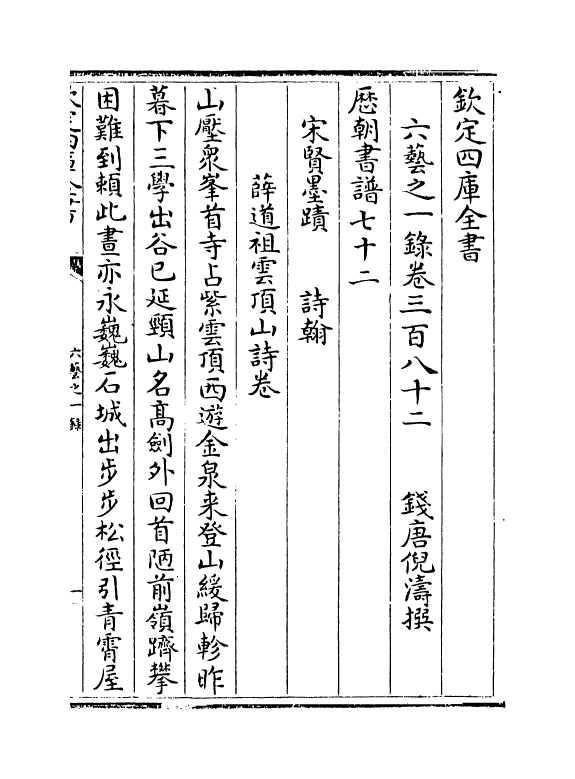 欽定四庫全書
六藝之一錄卷三百八十二　錢唐倪濤撰
歷朝書譜七十二
宋賢墨蹟　詩翰
薛道祖雲頂山詩卷
山壓衆峯首寺占紫雲頂西遊金泉来登山緩歸軫昨
暮下三學出谷已延頸山名髙劍外回首陋前嶺躋攀
困難到頼此晝亦永巍巍石城出步步松徑引青霄屋
六藝之一錄
一